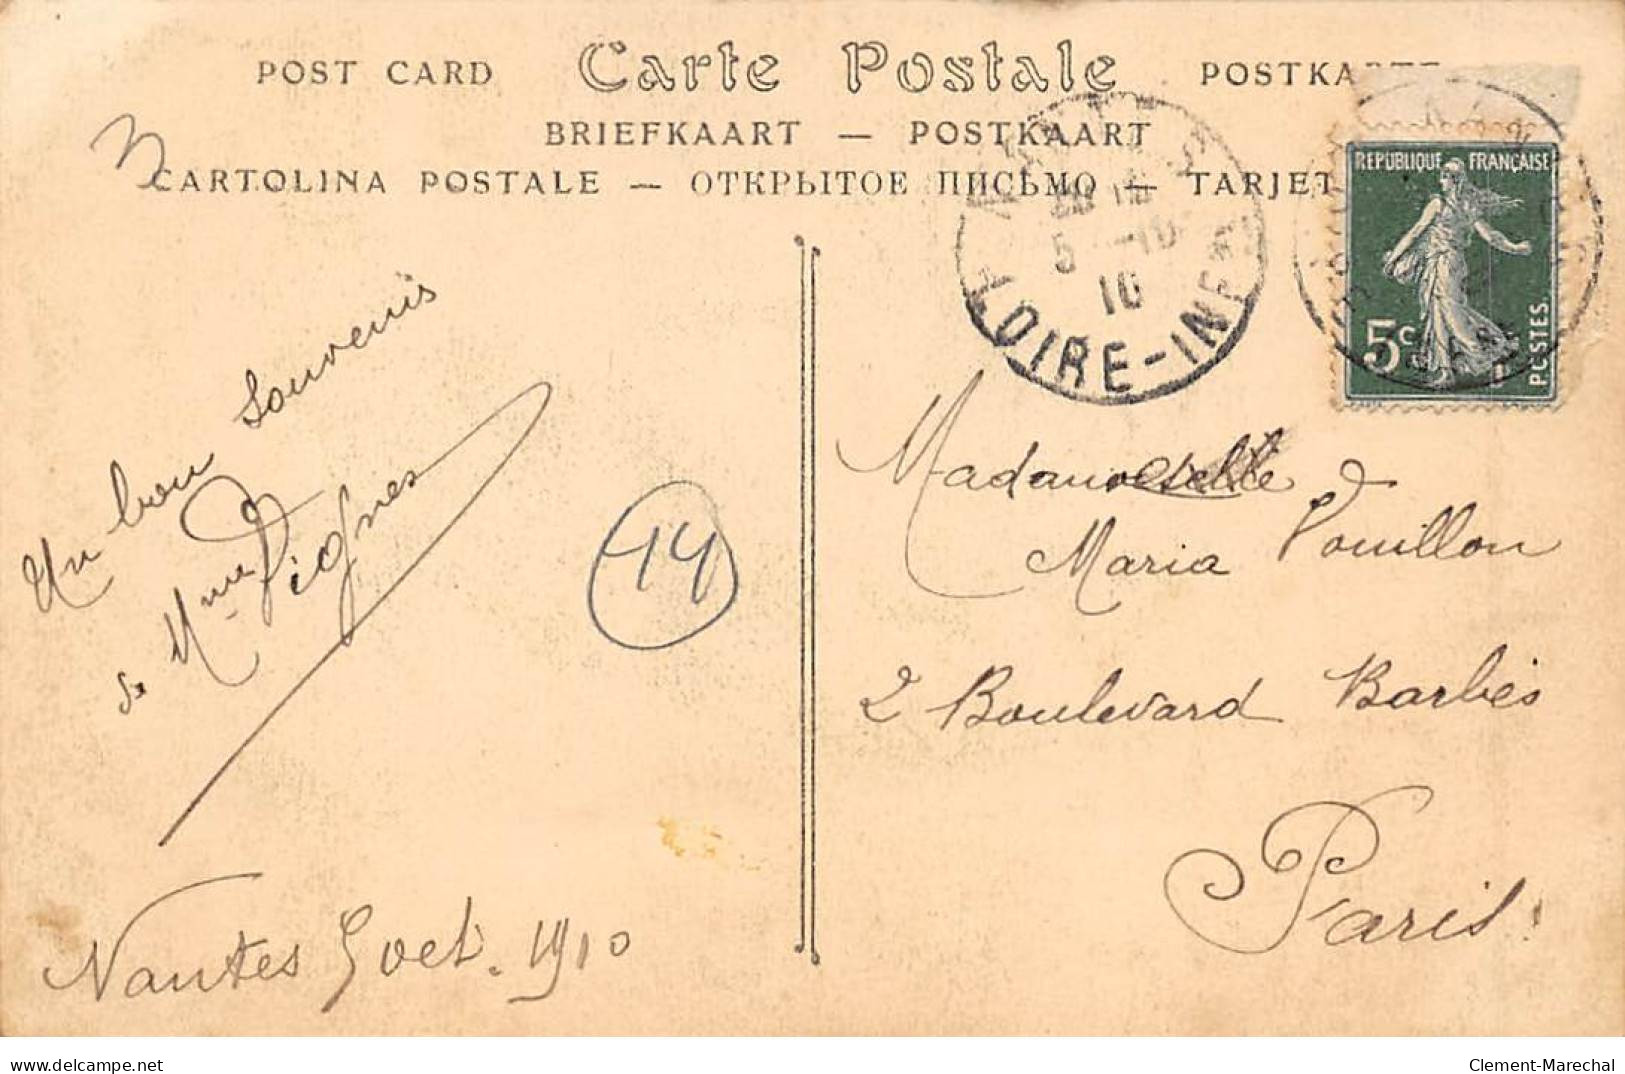 POST CARD Carte Postale
BRIEFKAART — POSTKAART
CARTOLINA POSTALE — ОТКРЫТОЕ ПИСЬМО — TARJET
3
REPUBLIQUE FRANÇAISE
5c
POSTES
NANTES
5 -10
10
LOIRE-INFRE
Un bon Souvenir
de Mme Vignes
14
Nantes 5 oct. 1910
Mademoiselle
Maria Pouillon
2 Boulevard Barbès
Paris
delcampe.net
Clement-Marechal